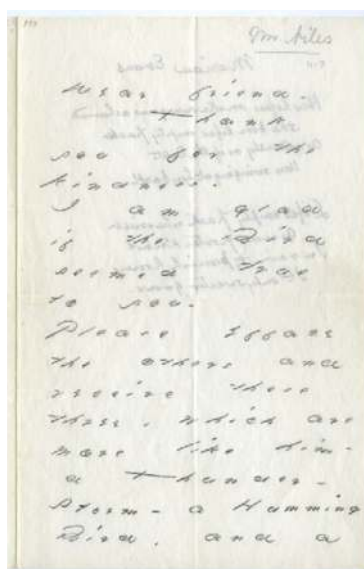 Niles
Dear friend.
Thank
you for the
kindness.
I am glad
if the Bird
seemed true
to you.
Please efface
the others and
receive these
three, which are
more like him -
a Thunder-
storm - a Humming
Bird, and a